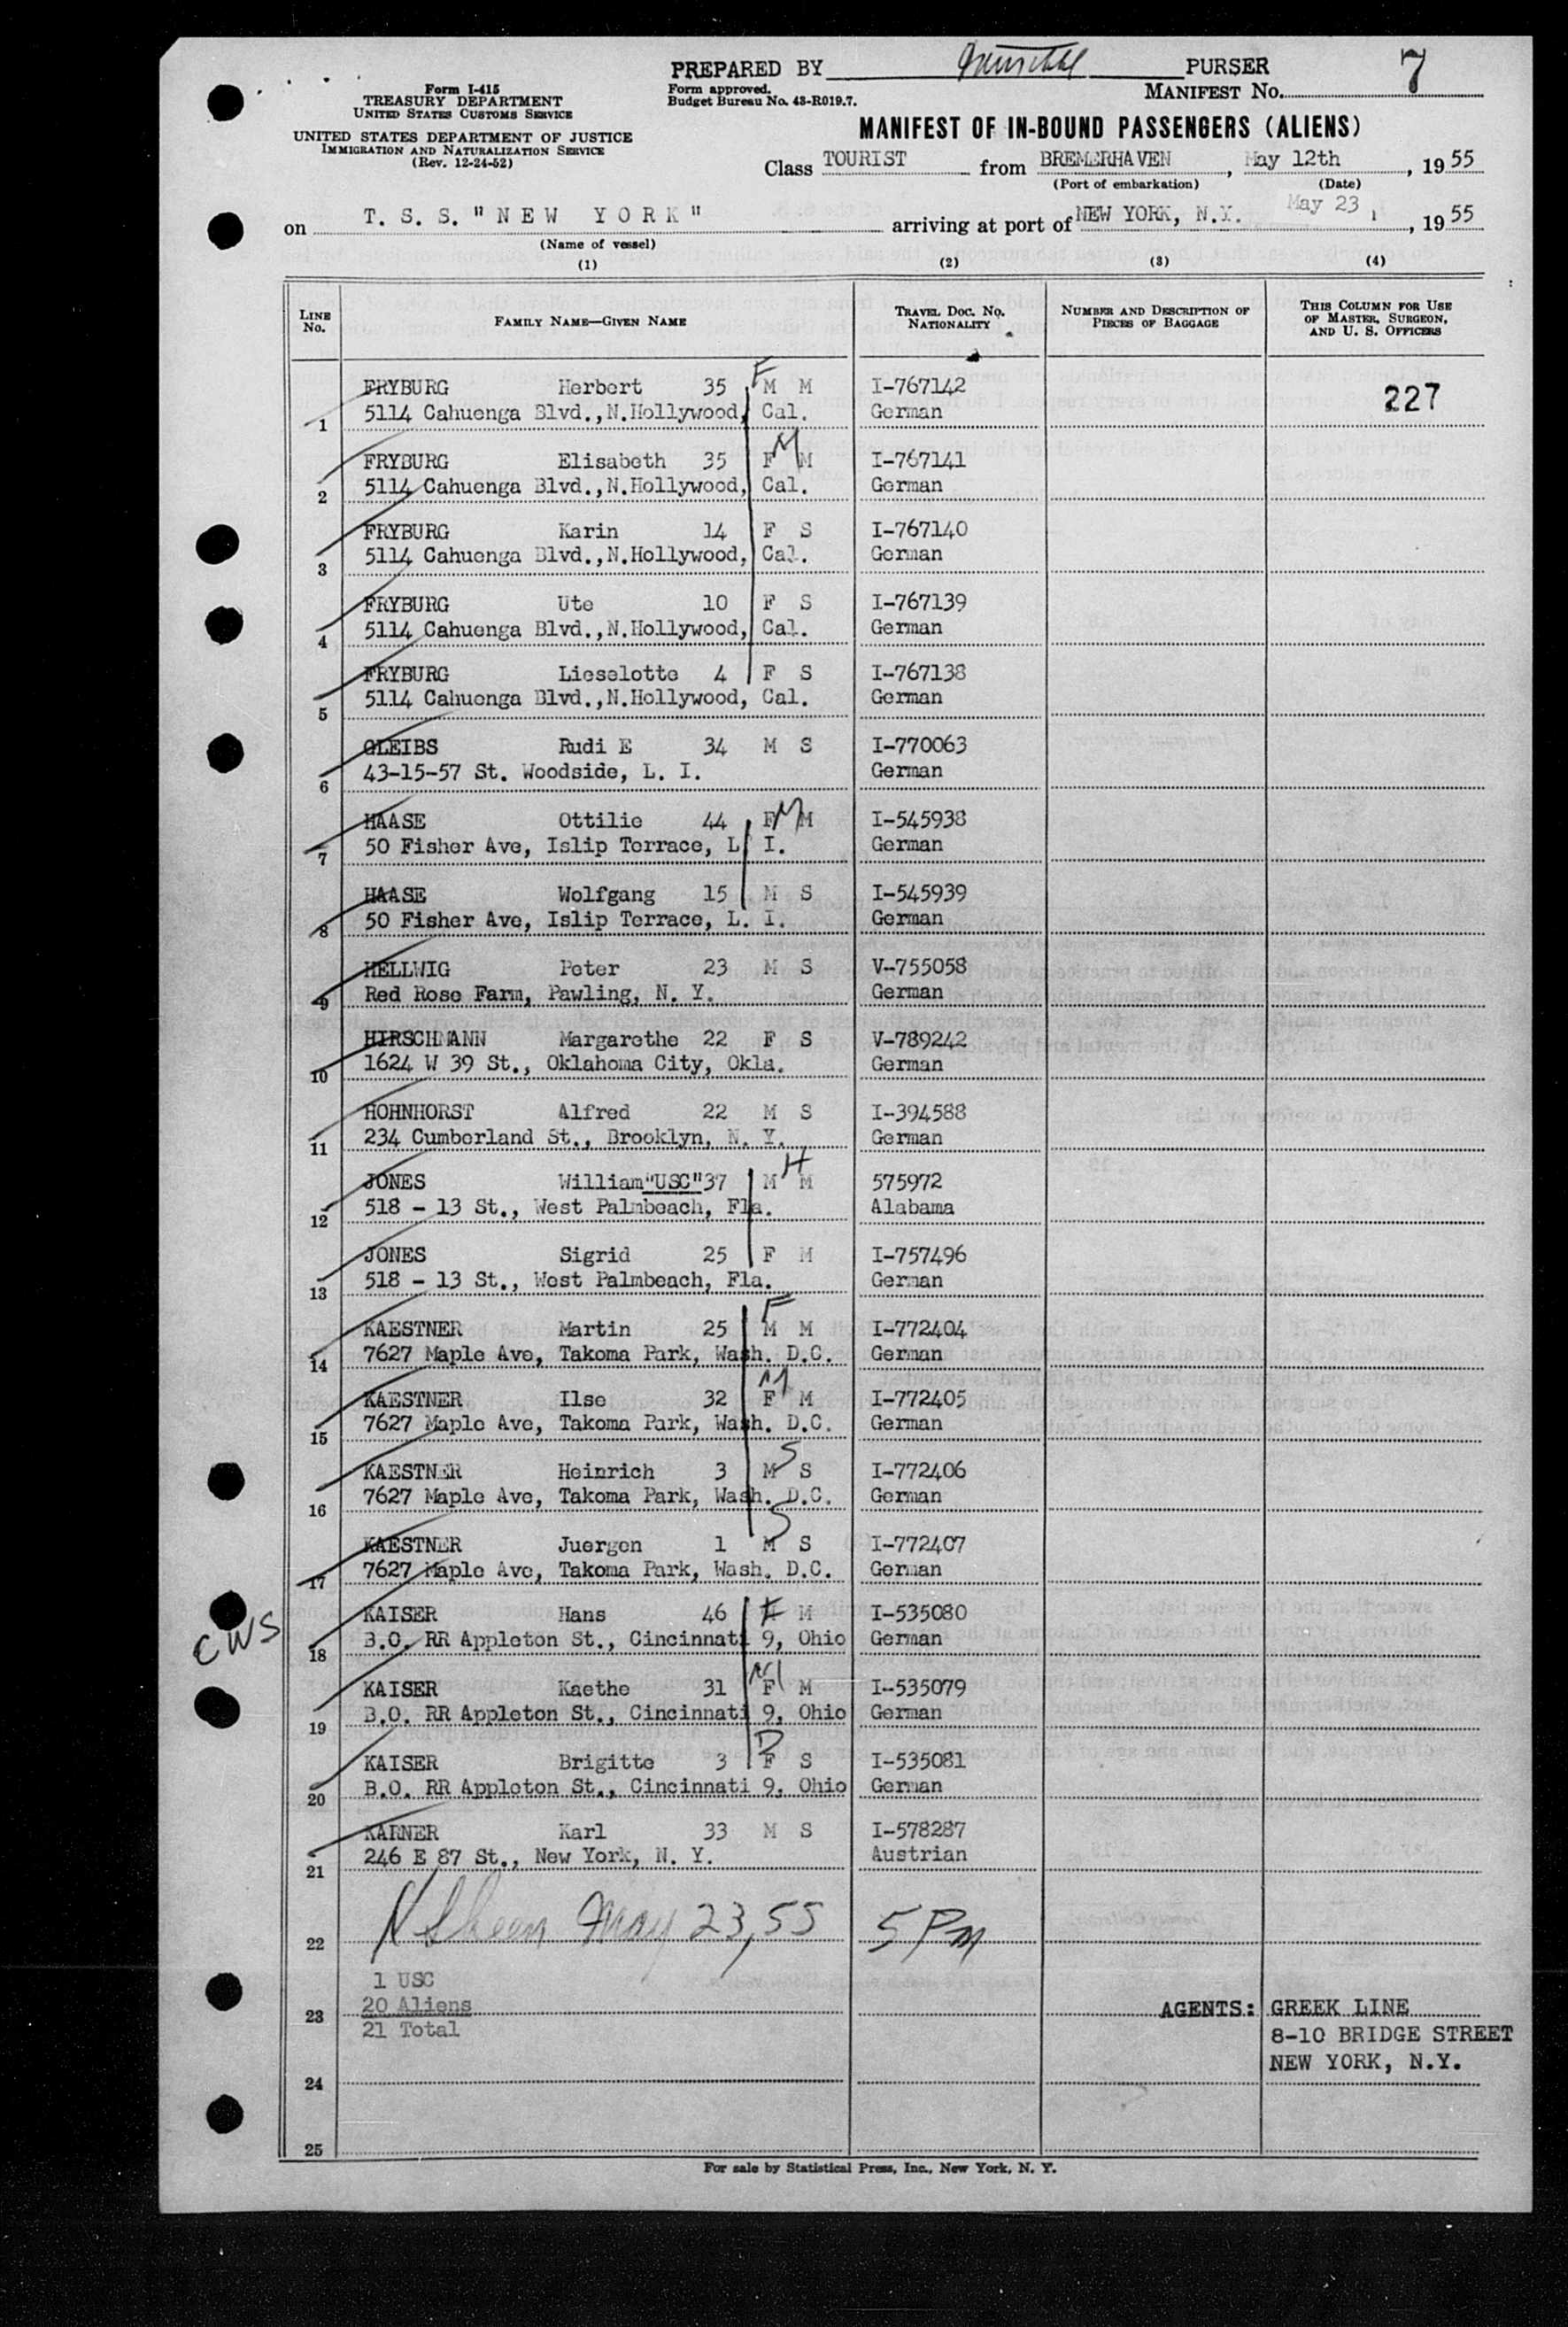 PREPARED BY PURSER
7
Form I-415
TREASURY DEPARTMENT
UNITED STATES CUSTOMS SERVICE
UNITED STATES DEPARTMENT OF JUSTICE
IMMIGRATION AND NATURALIZATION SERVICE
(Rev. 12-24-52)
Form approved.
Budget Bureau No. 43-R019.7.
MANIFEST NO.
MANIFEST OF IN-BOUND PASSENGERS (ALIENS)
Class TOURIST from BREMERHAVEN, May 12th, 1955
(Port of embarkation) (Date)
on T. S. S. "NEW YORK" arriving at port of NEW YORK, N.Y. May 23, 1955
(Name of vessel)
(1) (2) (3) (4)
LINE NO. FAMILY NAME—GIVEN NAME TRAVEL DOC. NO. NATIONALITY NUMBER AND DESCRIPTION OF PIECES OF BAGGAGE THIS COLUMN FOR USE OF MASTER, SURGEON, AND U. S. OFFICERS
F
FRYBURG Herbert 35 M M I-767142 227
1 5114 Cahuenga Blvd.,N.Hollywood, Cal. German
M
FRYBURG Elisabeth 35 F M I-767141
2 5114 Cahuenga Blvd.,N.Hollywood, Cal. German
FRYBURG Karin 14 F S I-767140
3 5114 Cahuenga Blvd.,N.Hollywood, Cal. German
FRYBURG Ute 10 F S I-767139
4 5114 Cahuenga Blvd.,N.Hollywood, Cal. German
FRYBURG Lieselotte 4 F S I-767138
5 5114 Cahuenga Blvd.,N.Hollywood, Cal. German
GLEIBS Rudi E 34 M S I-770063
6 43-15-57 St. Woodside, L. I. German
HAASE Ottilie 44 F M M I-545938
7 50 Fisher Ave, Islip Terrace, L. I. German
HAASE Wolfgang 15 M S I-545939
8 50 Fisher Ave, Islip Terrace, L. I. German
HELLWIG Peter 23 M S V-755058
9 Red Rose Farm, Pawling, N. Y. German
HIRSCHMANN Margarethe 22 F S V-789242
10 1624 W 39 St., Oklahoma City, Okla. German
HOHNHORST Alfred 22 M S I-394588
11 234 Cumberland St., Brooklyn, N. Y. German
H
JONES William"USC"37 M M 575972
12 518 - 13 St., West Palmbeach, Fla. Alabama
JONES Sigrid 25 F M I-757496
13 518 - 13 St., West Palmbeach, Fla. German
F
KAESTNER Martin 25 M M I-772404
14 7627 Maple Ave, Takoma Park, Wash. D.C. German
M
KAESTNER Ilse 32 F M I-772405
15 7627 Maple Ave, Takoma Park, Wash. D.C. German
S
KAESTNER Heinrich 3 M S I-772406
16 7627 Maple Ave, Takoma Park, Wash. D.C. German
S
KAESTNER Juergen 1 M S I-772407
17 7627 Maple Ave, Takoma Park, Wash. D.C. German
KAISER Hans 46 F M I-535080
CWS
18 B.O. RR Appleton St., Cincinnati 9, Ohio German
M
KAISER Kaethe 31 F M I-535079
19 B.O. RR Appleton St., Cincinnati 9, Ohio German
D
KAISER Brigitte 3 F S I-535081
20 B.O. RR Appleton St., Cincinnati 9, Ohio German
KARNER Karl 33 M S I-578287
21 246 E 87 St., New York, N. Y. Austrian
22 May 23, 55 5 PM
1 USC
23 20 Aliens AGENTS: GREEK LINE
21 Total 8-10 BRIDGE STREET
NEW YORK, N.Y.
24
25
For sale by Statistical Press, Inc., New York, N. Y.